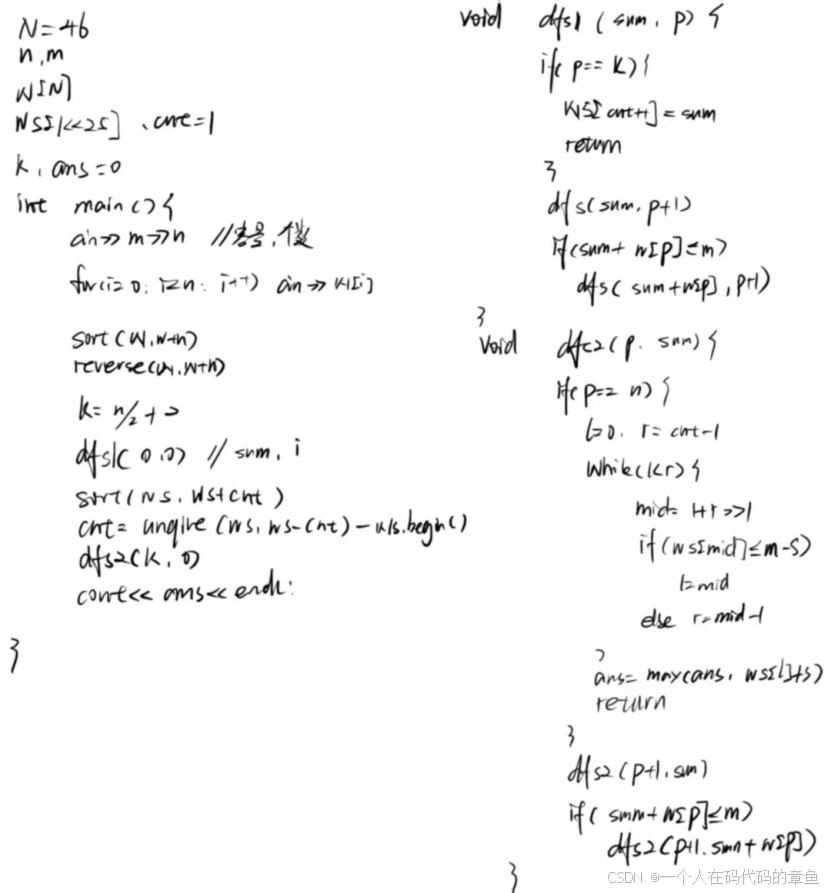 N=46
n,m
W[N]
WS[1<<25] , cnt=1
k, ans=0
int main(){
cin>>m>>n //
for(i=0; i<n; i++) cin>>w[i]
sort(W,W+n)
reverse(W,W+n)
k= n/2+2
dfs1(0,0) // sum, i
sort(WS, WS+cnt)
cnt= unqire(WS, WS-cnt)-WS.begin()
dfs2(k,0)
cout<< ans<< endl;
}
void dfs1 (sum, p) {
if( p== k){
WS[cnt++]=sum
return
}
dfs(sum, p+1)
if(sum+ w[p]≤m)
dfs( sum+w[p], p+1)
}
void dfs2(p, sum){
if(p== n){
l=0, r= cnt-1
while(l<r){
mid= l+r>>1
if(ws[mid]≤m-S)
l=mid
else r=mid-1
}
ans= max(ans, ws[l]+s)
return
}
dfs2(p+1,sum)
if( sum+w[p]≤m)
dfs2(p+1, sum+w[p])
}
CSDN @一个人在码代码的章鱼